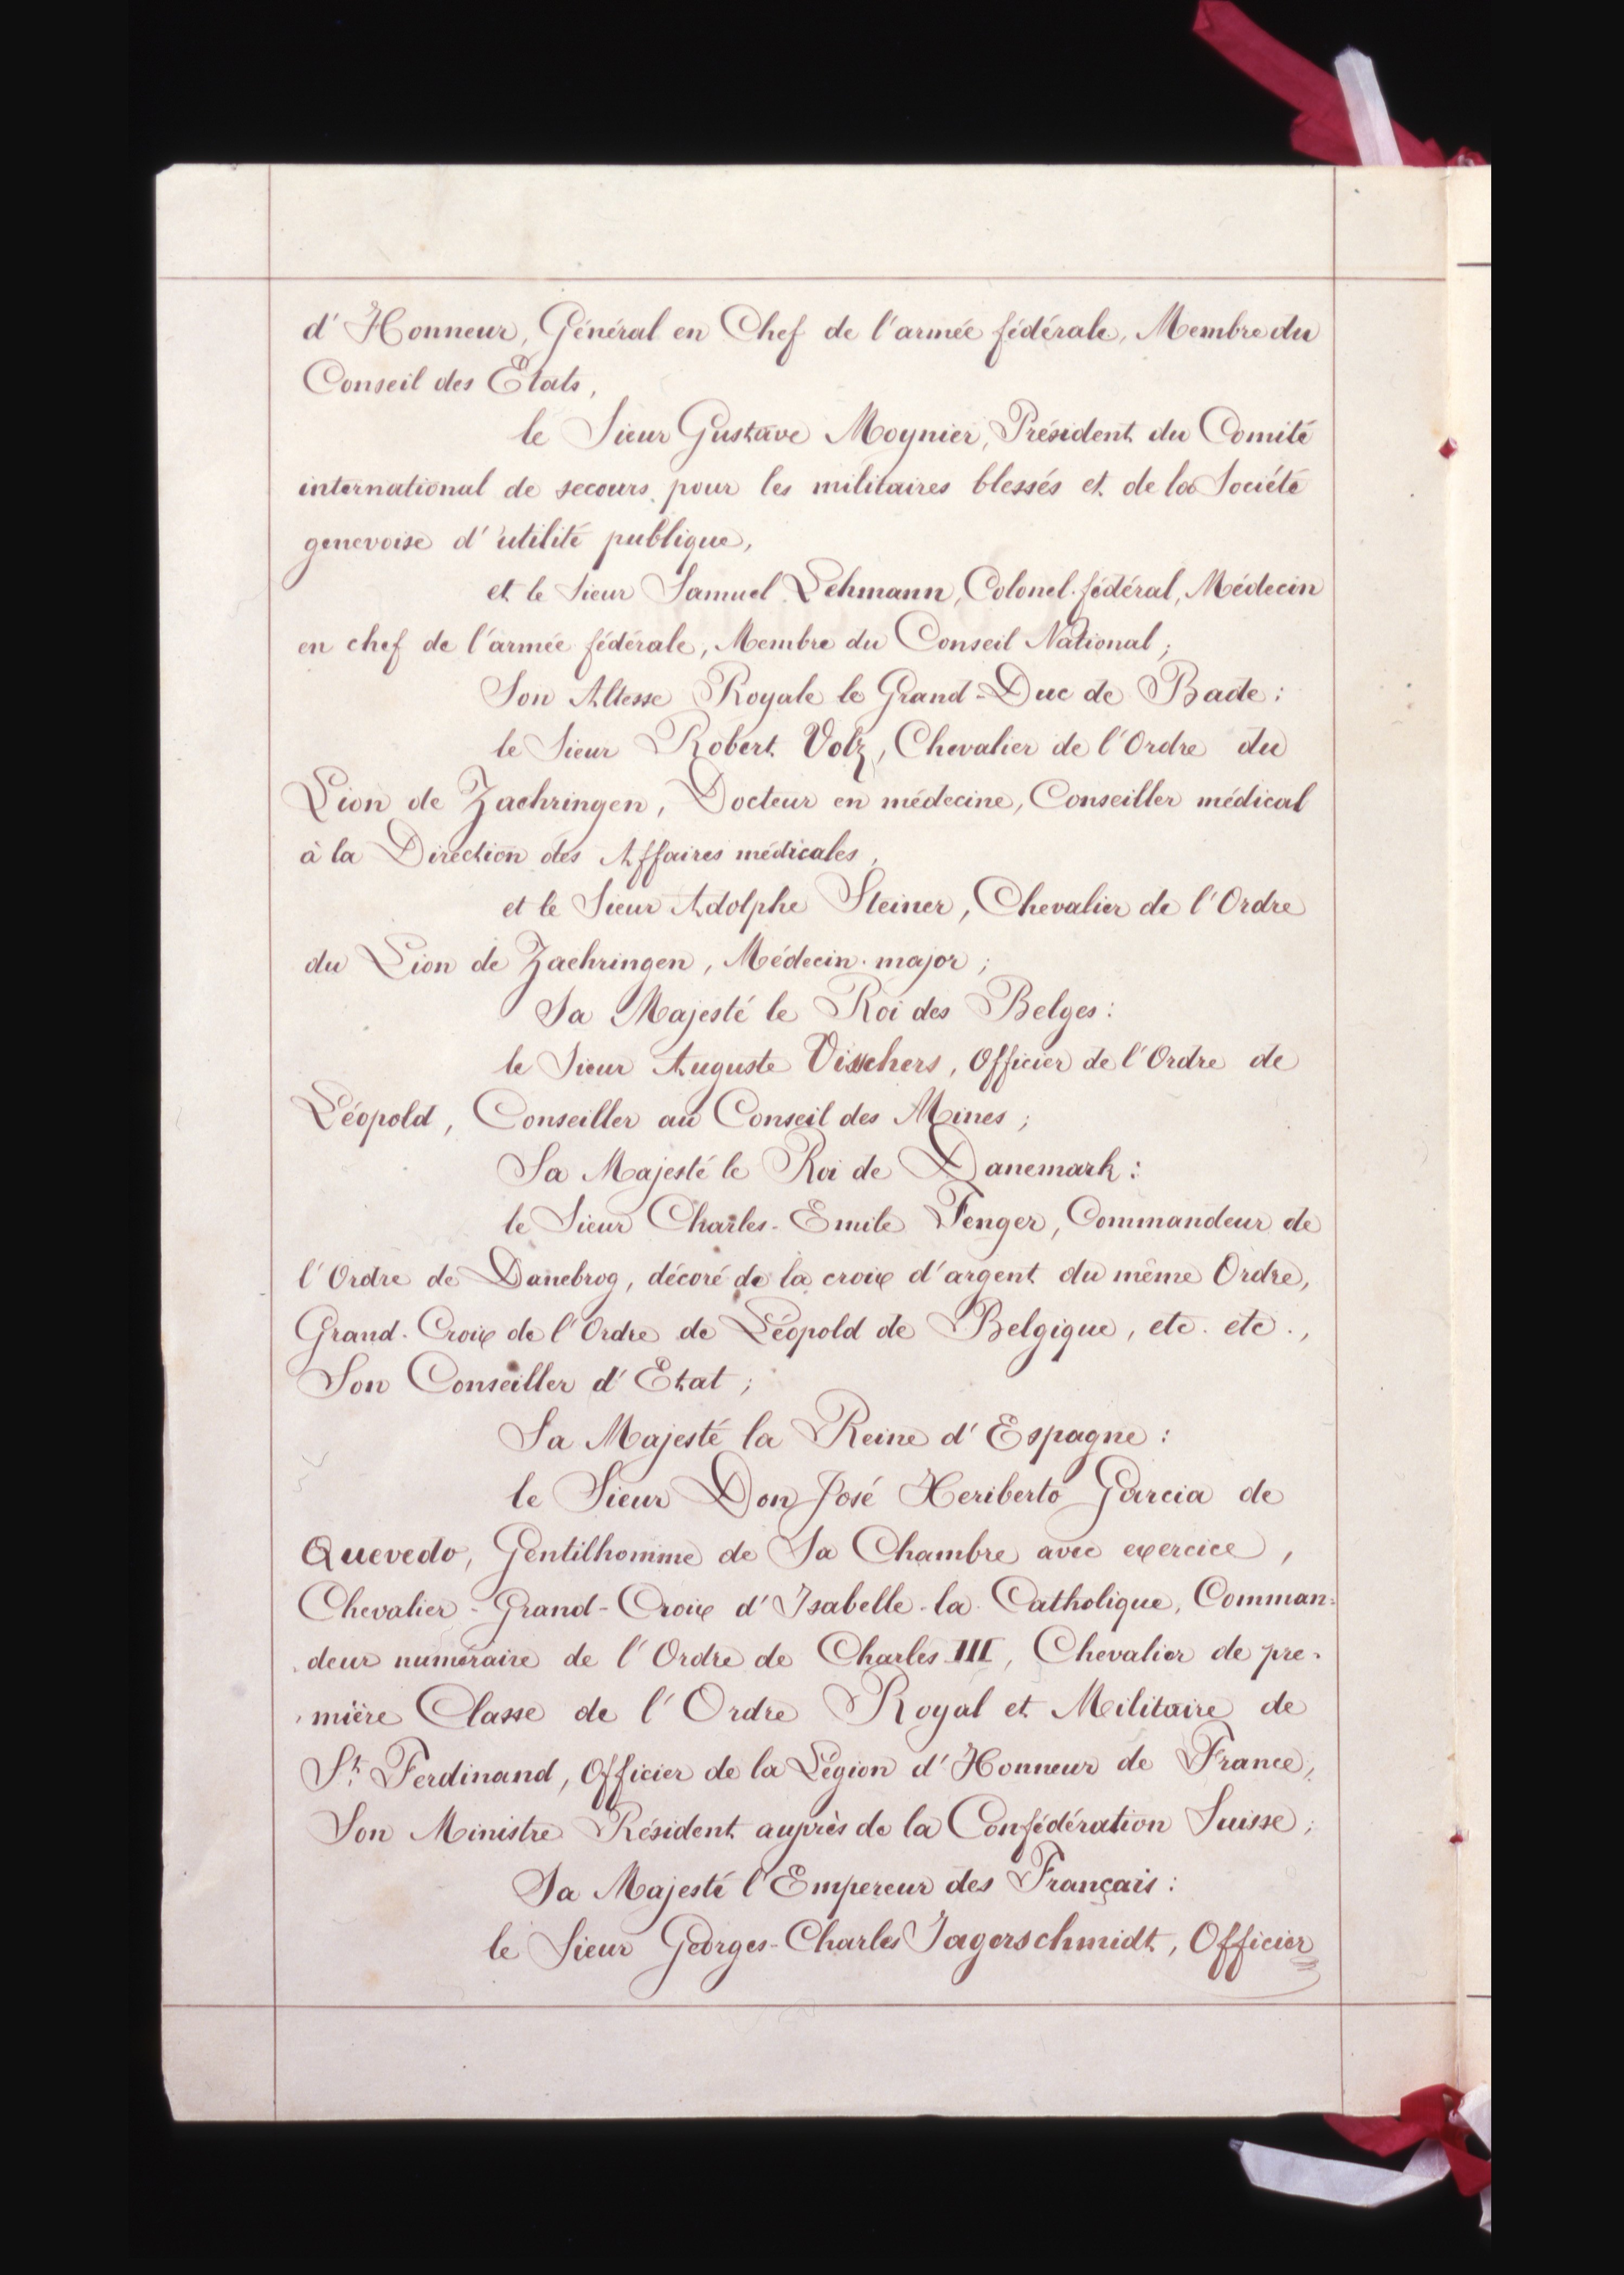 d' Honneur, Général en Chef de l'armée fédérale, Membre du
Conseil des Etats,
le Sieur Gustave Moynier, Président du Comité
international de secours pour les militaires blessés et de la Société
genevoise d'utilité publique,
et le Sieur Samuel Lehmann, Colonel fédéral, Médecin
en chef de l'armée fédérale, Membre du Conseil National;
Son Altesse Royale le Grand-Duc de Bade:
le Sieur Robert Volz, Chevalier de l'Ordre du
Lion de Zaehringen, Docteur en médecine, Conseiller médical
à la Direction des Affaires médicales,
et le Sieur Adolphe Steiner, Chevalier de l'Ordre
du Lion de Zaehringen, Médecin-major;
Sa Majesté le Roi des Belges:
le Sieur Auguste Visschers, Officier de l'Ordre de
Léopold, Conseiller au Conseil des Mines;
Sa Majesté le Roi de Danemark:
le Sieur Charles-Emile Fenger, Commandeur de
l'Ordre de Danebrog, décoré de la croix d'argent du même Ordre,
Grand-Croix de l'Ordre de Léopold de Belgique, etc. etc.,
Son Conseiller d'Etat;
Sa Majesté la Reine d'Espagne:
le Sieur Don José Heriberto Garcia de
Quevedo, Gentilhomme de Sa Chambre avec exercice,
Chevalier-Grand-Croix d'Isabelle-la-Catholique, Comman-
deur numéraire de l'Ordre de Charles III, Chevalier de pre-
mière Classe de l'Ordre Royal et Militaire de
St. Ferdinand, Officier de la Légion d'Honneur de France,
Son Ministre Résident auprès de la Confédération Suisse;
Sa Majesté l'Empereur des Français:
le Sieur Georges-Charles Jagerschmidt, Officier